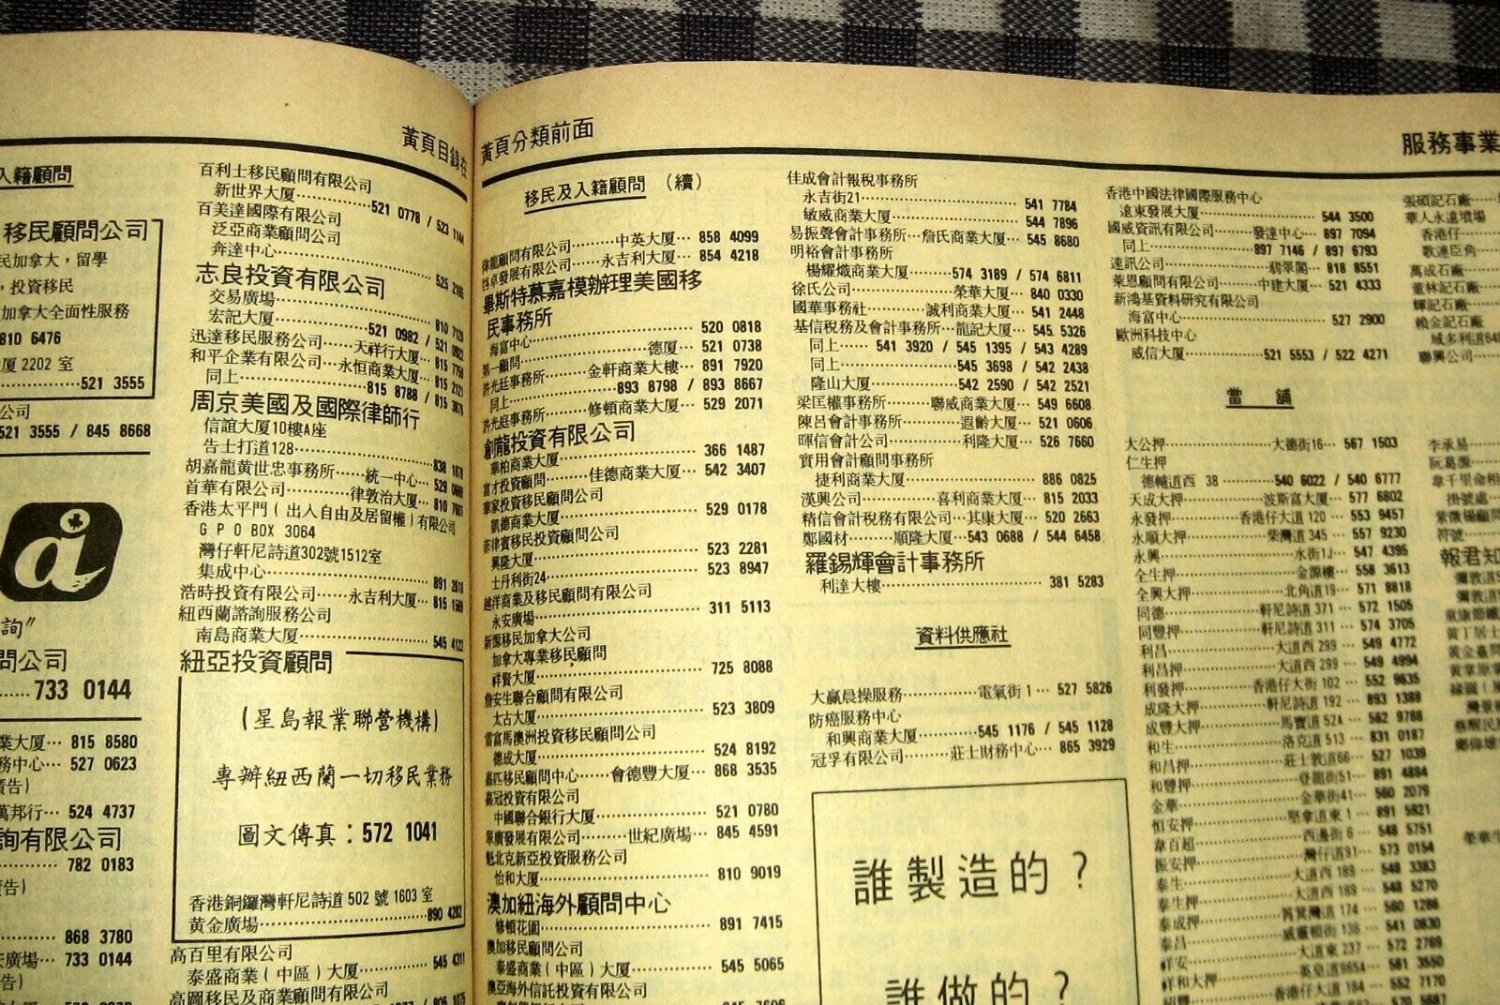 黃頁目錄在
入籍顧問
移民顧問公司
民加拿大，留學
，投資移民
加拿大全面性服務
810 6476
廈 2202 室
521 3555
公司
521 3555 / 845 8668
詢”
問公司
733 0144
業大廈… 815 8580
務中心… 527 0623
萬邦行… 524 4737
詢有限公司
782 0183
868 3780
廣場… 733 0144
百利士移民顧問有限公司
新世界大廈……521 0778 / 523
百美達國際有限公司
泛亞商業顧問公司
奔達中心……525
志良投資有限公司
交易廣場……810
宏記大廈……521 0982 / 521
迅達移民服務公司…天祥行大廈… 815
和平企業有限公司…永恒商業大廈… 815
同上……815 8788 / 815
周京美國及國際律師行
信誼大廈10樓A座
告士打道128……838
胡嘉龍黃世忠事務所……統一中心… 529
首華有限公司……律敦治大廈… 810
香港太平門（出入自由及居留權）有限公司
G P O BOX 3064
灣仔軒尼詩道302號1512室
集成中心……891
浩時投資有限公司…永吉利大廈… 815
紐西蘭諮詢服務公司
南島商業大廈……545
紐亞投資顧問
（星島報業聯營機構）
專辦紐西蘭一切移民業務
圖文傳真：572 1041
香港銅鑼灣軒尼詩道 502 號 1603 室
黃金廣場……890
高百里有限公司
泰盛商業（中區）大廈……545
高圖移民及商業顧問有限公司
黃頁分類前面
移民及入籍顧問 （續）
偉龍顧問有限公司……中英大廈… 858 4099
卓發展有限公司……永吉利大廈… 854 4218
畢斯特慕嘉模辦理美國移
民事務所
海富中心……520 0818
第一顧問……德廈… 521 0738
許光廷事務所……金軒商業大樓… 891 7920
同上……893 8798 / 893 8667
許光庭事務所……修頓商業大廈… 529 2071
創龍投資有限公司
華柏商業大廈……366 1487
富才投資顧問……佳德商業大廈… 542 3407
華家投資移民顧問公司
凱德商業大廈……529 0178
菲律賓移民投資顧問公司
興隆大廈……523 2281
士丹利街24……523 8947
越洋商業及移民顧問有限公司
永安廣場……311 5113
新源移民加拿大公司
加拿大專業移民顧問
祥賢大廈……725 8088
詹安生聯合顧問有限公司
太古大廈……523 3809
雷富馬澳洲投資移民顧問公司
德成大廈……524 8192
嘉匹移民顧問中心……會德豐大廈… 868 3535
嘉冠投資有限公司
中國聯合銀行大廈……521 0780
業廣發展有限公司……世紀廣場… 845 4591
魁北克新亞投資服務公司
怡和大廈……810 9019
澳加紐海外顧問中心
修頓花園……891 7415
澳加移民顧問公司
泰盛商業（中區）大廈……545 5065
澳亞海外信託投資有限公司
佳成會計報稅事務所
永吉街21……541 7784
敏威商業大廈……544 7896
易振聲會計事務所…詹氏商業大廈… 545 8680
明裕會計事務所
楊耀熾商業大廈……574 3189 / 574 6811
徐氏公司……榮華大廈… 840 0330
國華事務社……誠利商業大廈… 541 2448
基信稅務及會計事務所…龍記大廈… 545 5326
同上…… 541 3920 / 545 1395 / 543 4289
同上……545 3698 / 542 2438
隆山大廈……542 2590 / 542 2521
梁匡權事務所……聯威商業大廈… 549 6608
陳呂會計事務所……遐齡大廈… 521 0606
暉信會計公司……利隆大廈… 526 7660
實用會計顧問事務所
捷利商業大廈……886 0825
漢興公司……喜利商業大廈… 815 2033
精信會計稅務有限公司…其康大廈… 520 2663
鄭國材……順隆大廈…543 0688 / 544 6458
羅錫輝會計事務所
利達大樓……381 5283
資料供應社
大贏晨操服務……電氣街 1… 527 5826
防癌服務中心
和興商業大廈……545 1176 / 545 1128
冠孚有限公司……莊士財務中心… 865 3929
誰製造的？
誰做的？
服務事業
香港中國法律國際服務中心
遠東發展大廈……544 3500
國威資訊有限公司……發達中心… 897 7094
同上……897 7146 / 897 6793
速訊公司……翡翠閣… 818 8551
萊恩顧問有限公司……中建大廈… 521 4333
新鴻基資料研究有限公司
海富中心……527 2900
歐洲科技中心
威信大廈……521 5553 / 522 4271
當 舖
大公押……大德街16… 567 1503
仁生押
德輔道西 38……540 6022 / 540 6777
天成大押……波斯富大廈… 577 6802
永發押……香港仔大道 120… 553 9457
永順大押……柴灣道 345… 557 9230
永興……水街1J… 547 4395
全生押……金源樓… 558 3613
全興大押……北角道19… 571 8818
同德……軒尼詩道 371… 572 1505
同豐押……軒尼詩道 311… 574 3705
利昌……大道西 299… 549 4772
利昌押……大道西 299… 549 4994
利發押……香港仔大街 102… 552 9635
成隆大押……軒尼詩道 192… 893 1388
成豐大押……馬寶道 52A… 562 9788
和生……洛克道 513… 831 0187
和昌押……莊士敦道66… 527 1039
和豐押……登龍街51… 891 4884
金華……金華街41… 560 2079
恒安押……堅拿道東 1… 891 5821
韋百超……西邊街 6… 548 5751
振安押……灣仔道91… 573 0154
泰生……大道西 189… 548 3383
泰生押……大道西 189… 548 5270
泰成押……筲箕灣道 174… 560 1286
泰昌……威靈頓街 136… 541 0630
祥安……大道東 237… 572 2789
祥和大押
張碩記石廠
華人永遠墳場
香港仔
歌連臣角
萬成石廠
董林記石廠
輝記石廠
賴金記石廠
域多利道
聯興公司
李承易
阮葛源
掛號處
符號
報君知